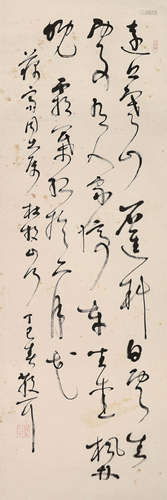 遠上寒山石徑斜白雲生
處有人家停車坐愛楓林
晚霜葉紅於二月花
同志屬 杜牧山行 丁巳春 散耳